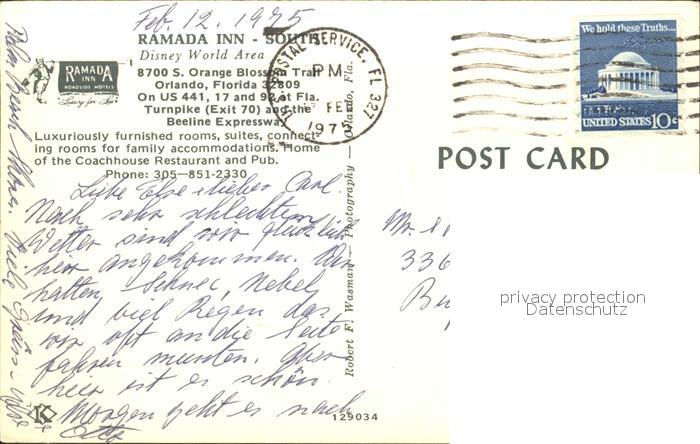 Feb. 12, 1975
RAMADA INN - SOUTH
Disney World Area
8700 S. Orange Blossom Trail
Orlando, Florida 32809
On US 441, 17 and 92 at Fla.
Turnpike (Exit 70) and the
Beeline Expressway
Luxuriously furnished rooms, suites, connect-
ing rooms for family accommodations. Home
of the Coachhouse Restaurant and Pub.
Phone: 305-851-2330
RAMADA INN
ROADSIDE HOTELS
Luxury for Less
Liebe Else u lieber Carl
Nach sehr schlechtem
Wetter sind wir glücklich
hier angekommen. Wir
hatten Schnee, Nebel
und viel Regen das
wir oft an die Seite
fahren mussten. Aber
hier ist es schön.
Morgen geht es nach
Palm Beach
Otto
K
129034
Robert F. Wasman — Photography — Orlando, Fla.
POSTAL SERVICE, FL 327
PM
FEB
1975
We hold these Truths...
UNITED STATES 10c
POST CARD
Mr.
336
privacy protection
Datenschutz